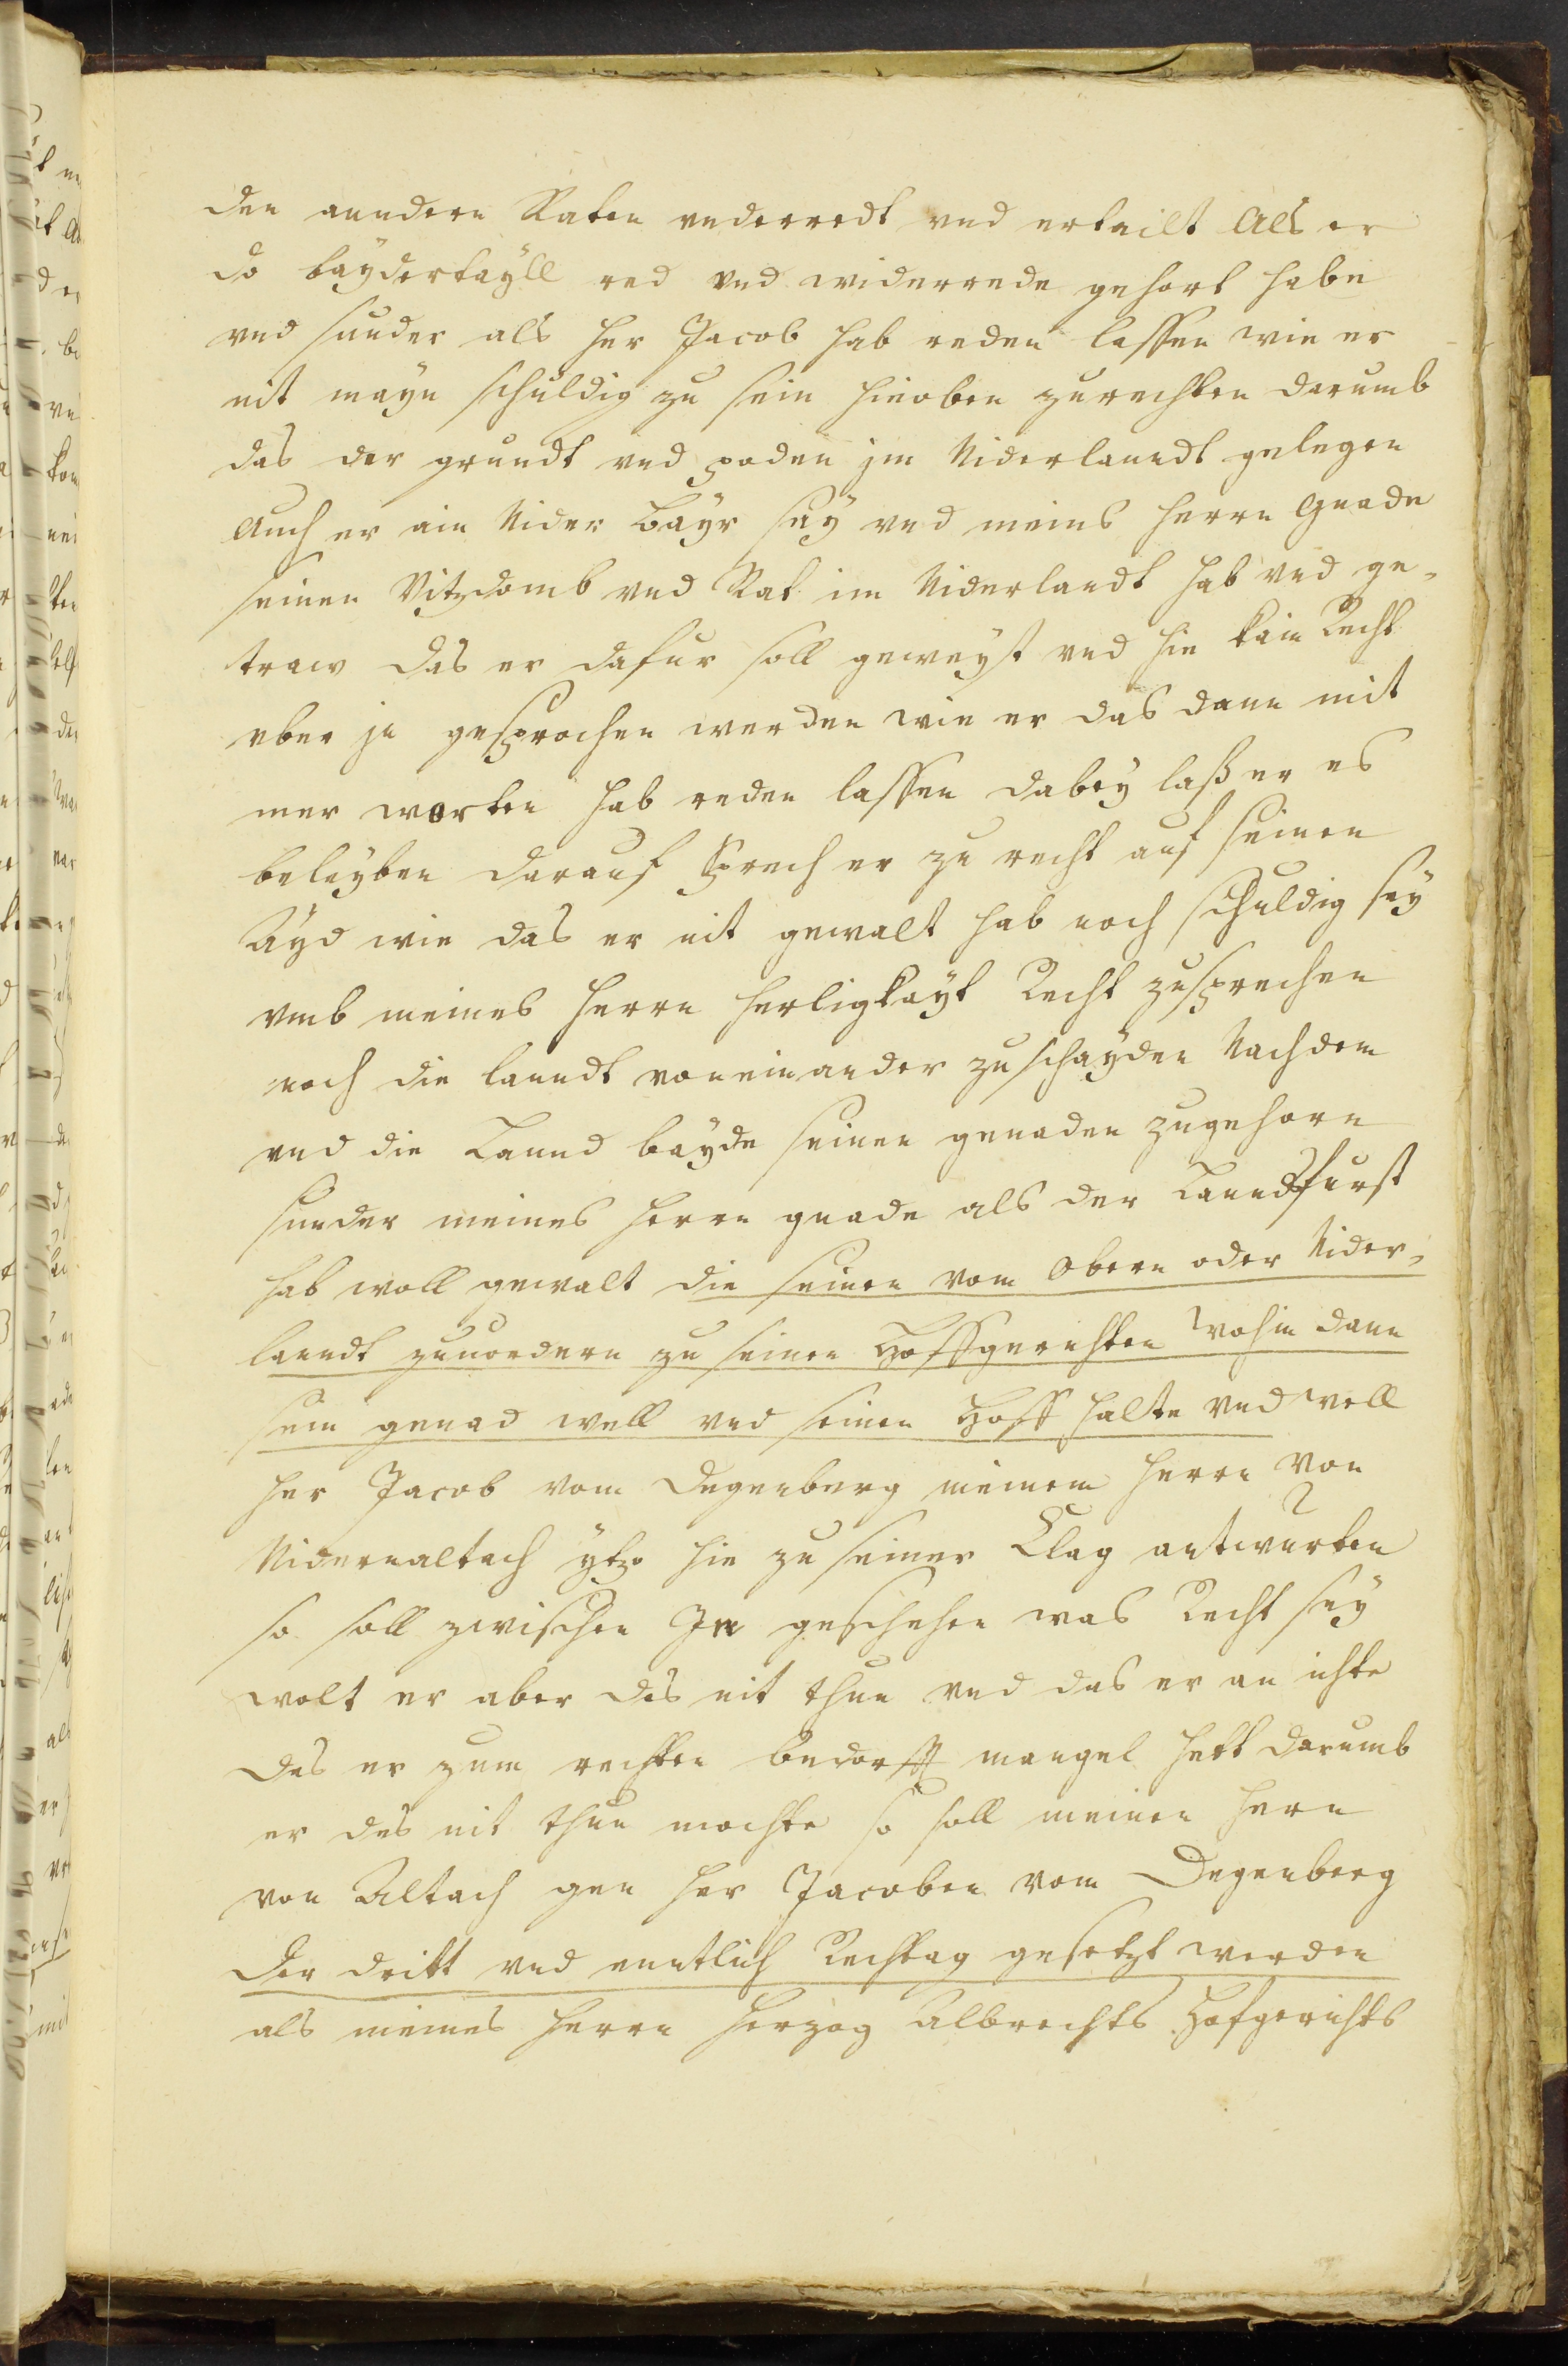 den anndern Raten vnderredt vnd ertailt Als er
do bayderkayll red vnd widerrede gehort habe
vnd sunder als her Jacob hab reden lassen wie er
nit mayn schuldig zu sein hieoben zurechten darumb
das der grundt vnd poden jm Niderlanndt gelegen
Auch er ain Nider Bayr sey vnd meins herrn Gnade
seinen Vitzdomb vnd Rat im Niderlandt hab vnd ge-
traw das er dafur soll geweyst vnd hie kain Recht
vber jn gesprochen werden wie er das dann mit
mer worten hab reden lassen dabey laß er es
beleyben darauf sprech er zu recht auf seinen
Ayd wie das er nit gewalt hab noch schuldig sey
vmb meines herrn herligkayt Recht zusprechen
noch die lanndt voneinander zuschayden Nachdem
vnd die Lannd bayde seinen genaden zugehorn
sunder meines herrn gnade als der Lanndsfurst
hab woll gewalt die seinen vom Obern oder Nider-
lanndt zuuordern zu seinen Hoffgerichten wohin dann
sein genad well vnd seinen Hoff halte vnd well
her Jacob vom Degenberg meinem herrn von
Nidernaltach ytzo hie zu seiner Clag antwurten
so soll zwischen In geschehen was Recht sey
wolt er aber des nit thun vnd das er an ichte
des er zum rechten bedorfft mangel hett darumb
er des nit thun mochte so soll meinen hern
von Altach gen her Jacoben vom Degenberg
der dritt vnd enntlich Rechtag gesetzt werden
als meines herrn Herzog Albrechts Hofgerichts